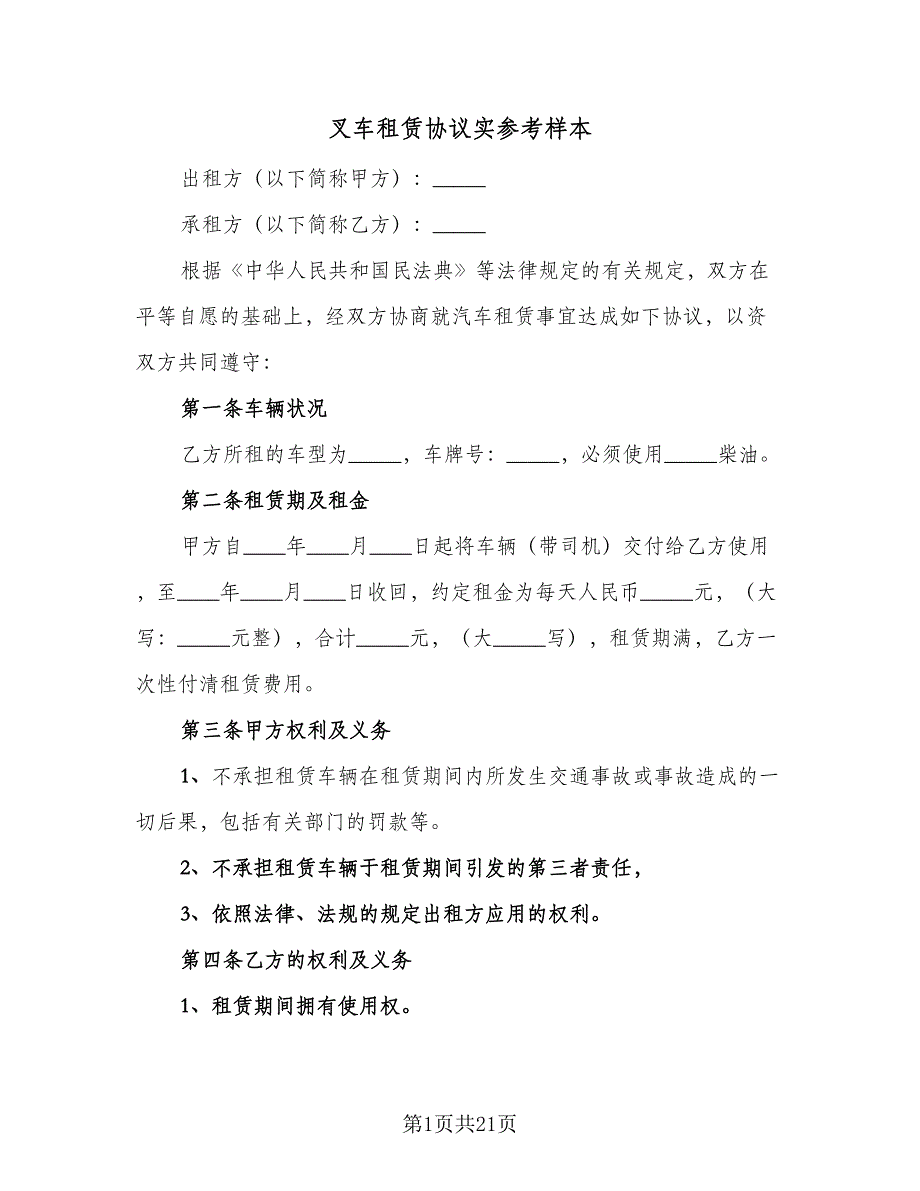 叉车租赁协议实参考样本
出租方（以下简称甲方）：_____
承租方（以下简称乙方）：_____
根据《中华人民共和国民法典》等法律规定的有关规定，双方在
平等自愿的基础上，经双方协商就汽车租赁事宜达成如下协议，以资
双方共同遵守：
第一条车辆状况
乙方所租的车型为_____，车牌号：_____，必须使用_____柴油。
第二条租赁期及租金
甲方自____年____月____日起将车辆（带司机）交付给乙方使用
，至____年____月____日收回，约定租金为每天人民币_____元，（大
写：_____元整），合计_____元，（大_____写），租赁期满，乙方一
次性付清租赁费用。
第三条甲方权利及义务
1、不承担租赁车辆在租赁期间内所发生交通事故或事故造成的一
切后果，包括有关部门的罚款等。
2、不承担租赁车辆于租赁期间引发的第三者责任，
3、依照法律、法规的规定出租方应用的权利。
第四条乙方的权利及义务
1、租赁期间拥有使用权。
第1页共21页